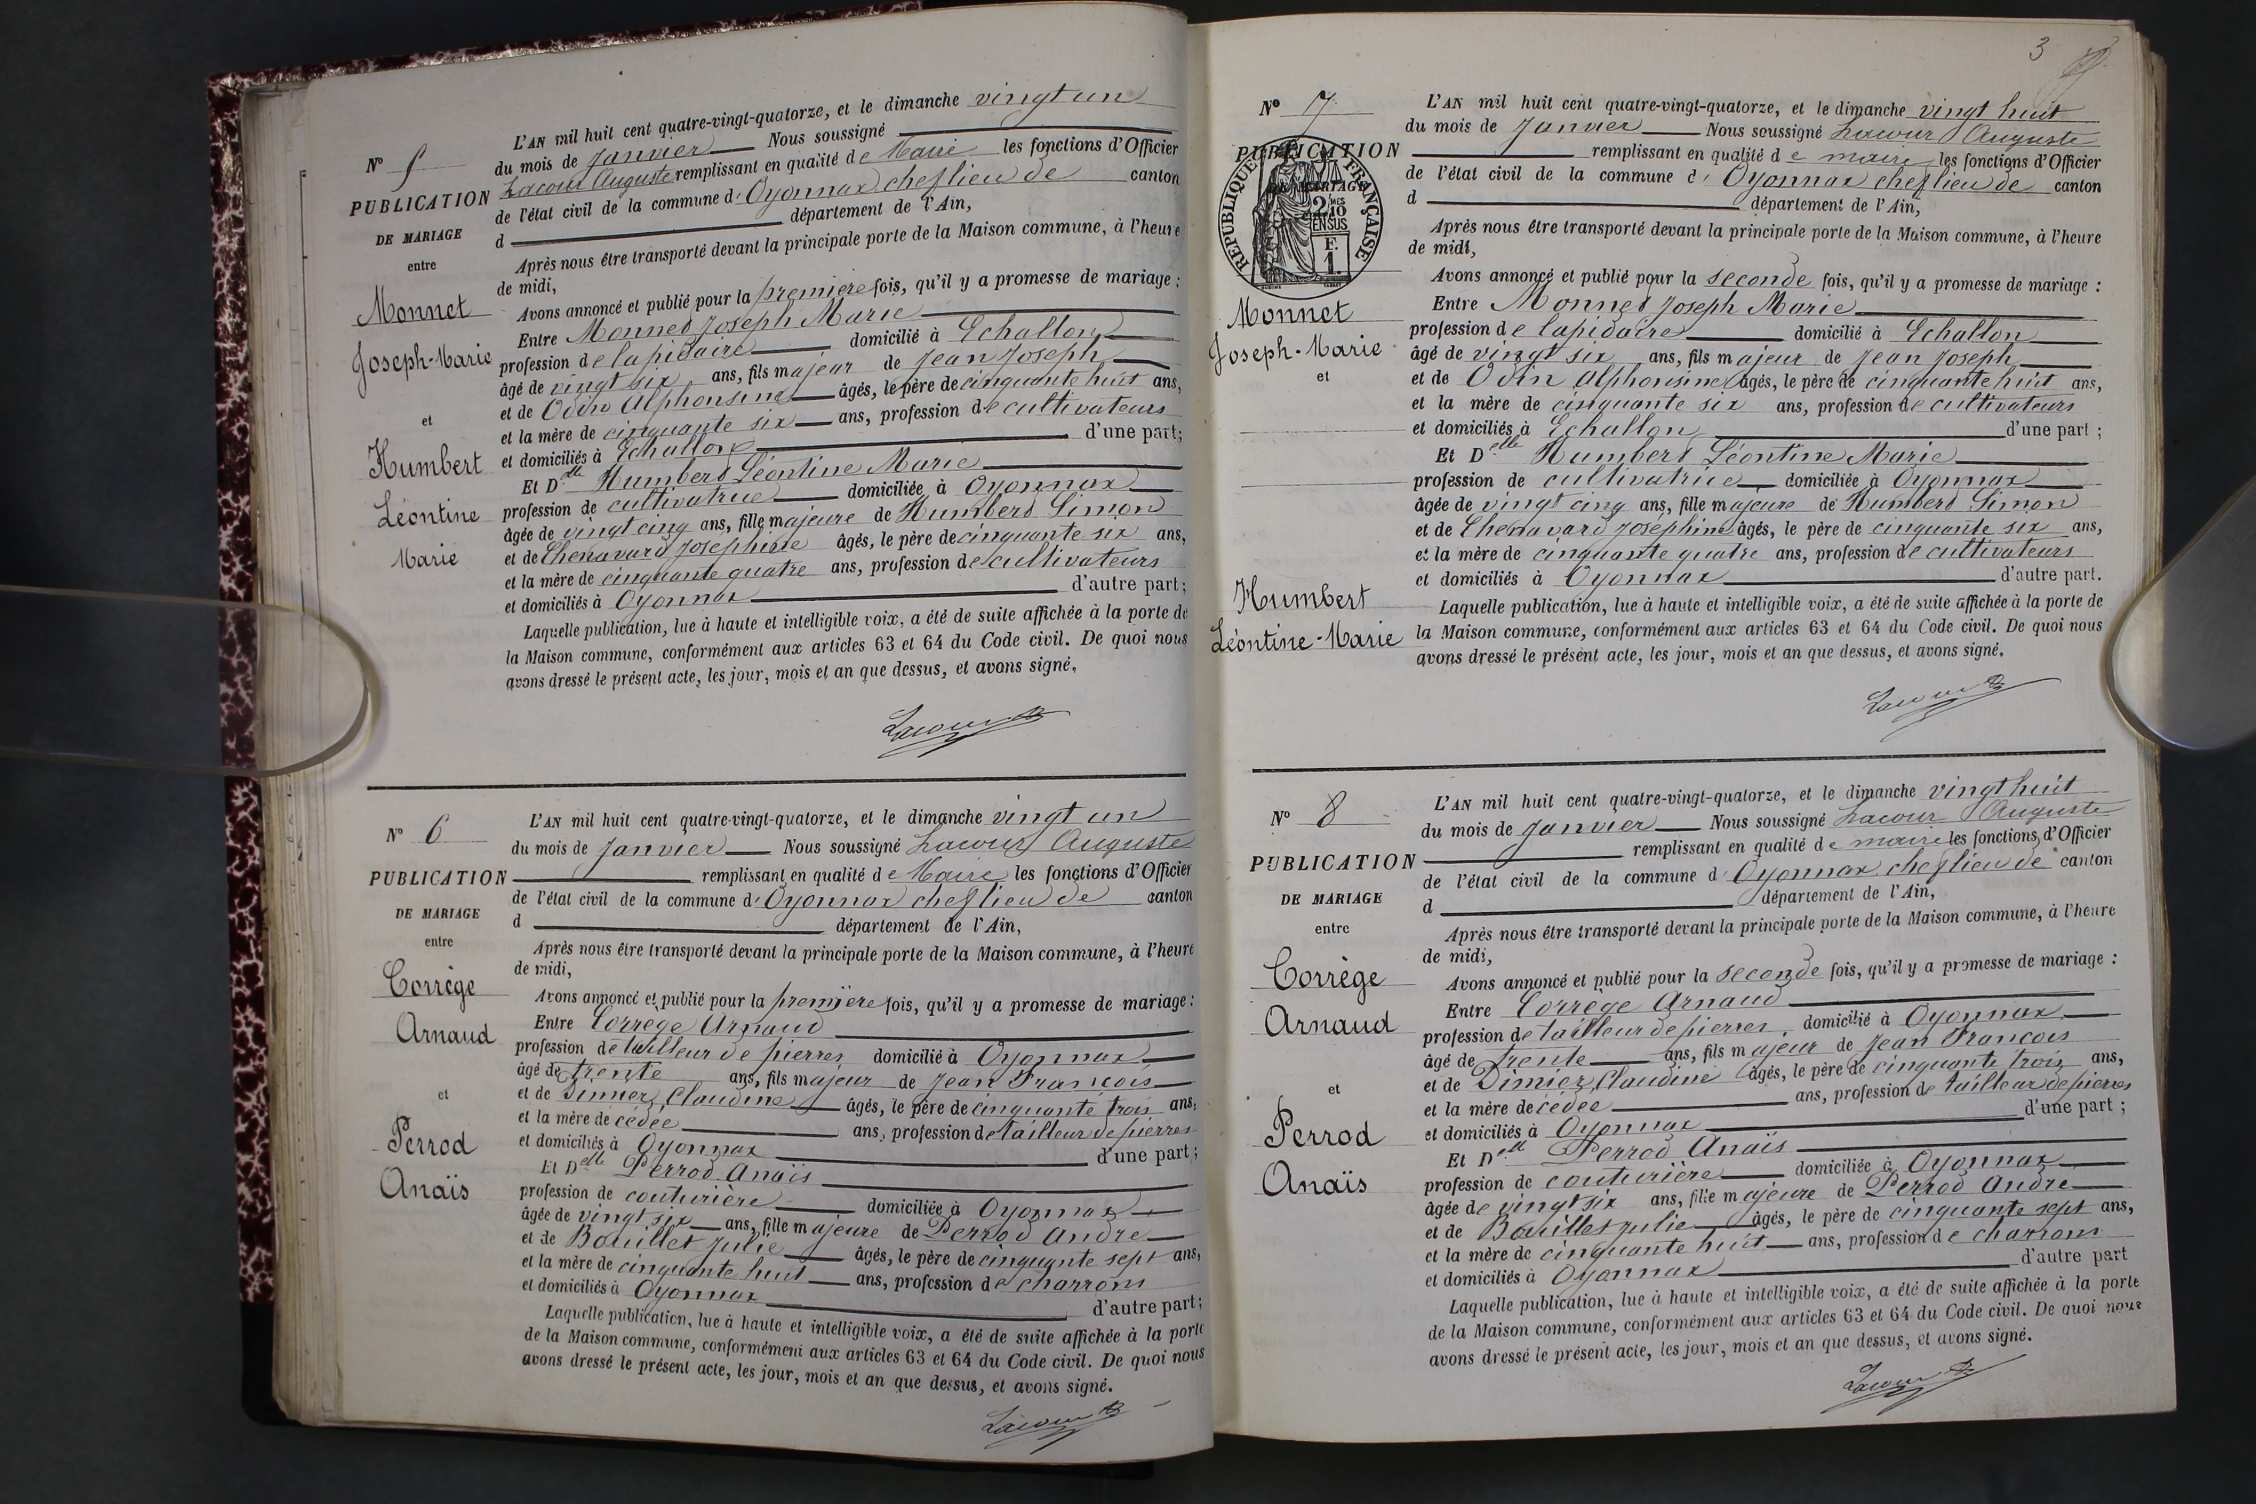 N° 5
PUBLICATION
DE MARIAGE
entre
Monnet
Joseph-Marie
et
Humbert
Léontine
Marie
L'AN mil huit cent quatre-vingt-quatorze, et le dimanche vingt un
du mois de Janvier Nous soussigné
Lacour Auguste remplissant en qualité de Maire les fonctions d'Officier
de l'état civil de la commune d'Oyonnax chef lieu de canton
d département de l'Ain,
Après nous être transporté devant la principale porte de la Maison commune, à l'heure
de midi,
Avons annoncé et publié pour la première fois, qu'il y a promesse de mariage :
Entre Monnet Joseph Marie
profession de lapidaire domicilié à Echallon
âgé de vingt six ans, fils majeur de Jean Joseph
et de Odin Alphonsine âgés, le père de cinquante huit ans,
et la mère de cinquante six ans, profession de cultivateurs
et domiciliés à Echallon d'une part;
Et Delle Humbert Léontine Marie
profession de cultivatrice domiciliée à Oyonnax
âgée de vingt cinq ans, fille majeure de Humbert Simon
et de Chenavard Joséphine âgés, le père de cinquante six ans,
et la mère de cinquante quatre ans, profession de cultivateurs
et domiciliés à Oyonnax d'autre part;
Laquelle publication, lue à haute et intelligible voix, a été de suite affichée à la porte de
la Maison commune, conformément aux articles 63 et 64 du Code civil. De quoi nous
avons dressé le présent acte, les jour, mois et an que dessus, et avons signé.
Lacour
N° 6
PUBLICATION
DE MARIAGE
entre
Corrège
Arnaud
et
Perrod
Anaïs
L'AN mil huit cent quatre-vingt-quatorze, et le dimanche vingt un
du mois de Janvier Nous soussigné Lacour Auguste
remplissant en qualité de Maire les fonctions d'Officier
de l'état civil de la commune d'Oyonnax chef lieu de canton
d département de l'Ain,
Après nous être transporté devant la principale porte de la Maison commune, à l'heure
de midi,
Avons annoncé et publié pour la première fois, qu'il y a promesse de mariage :
Entre Corrège Arnaud
profession de tailleur de pierres domicilié à Oyonnax
âgé de trente ans, fils majeur de Jean François
et de Claudine âgés, le père de cinquante trois ans,
et la mère décédée ans, profession de tailleur de pierres
et domiciliés à Oyonnax d'une part;
Et Delle Perrod Anaïs
profession de couturière domiciliée à Oyonnax
âgée de vingt six ans, fille majeure de Perrod André
et de Bouillet Julie âgés, le père de cinquante sept ans,
et la mère de cinquante huit ans, profession de charrons
et domiciliés à Oyonnax d'autre part;
Laquelle publication, lue à haute et intelligible voix, a été de suite affichée à la porte
de la Maison commune, conformément aux articles 63 et 64 du Code civil. De quoi nous
avons dressé le présent acte, les jour, mois et an que dessus, et avons signé.
Lacour
3
N° 7
PUBLICATION
DE MARIAGE
RÉPUBLIQUE FRANÇAISE
2 MES
10
EN SUS
F.
1.
Monnet
Joseph-Marie
et
Humbert
Léontine-Marie
L'AN mil huit cent quatre-vingt-quatorze, et le dimanche vingt huit
du mois de Janvier Nous soussigné Lacour Auguste
remplissant en qualité de maire les fonctions d'Officier
de l'état civil de la commune d'Oyonnax chef lieu de canton
d département de l'Ain,
Après nous être transporté devant la principale porte de la Maison commune, à l'heure
de midi,
Avons annoncé et publié pour la seconde fois, qu'il y a promesse de mariage :
Entre Monnet Joseph Marie
profession de lapidaire domicilié à Echallon
âgé de vingt six ans, fils majeur de Jean Joseph
et de Odin Alphonsine âgés, le père de cinquante huit ans,
et la mère de cinquante six ans, profession de cultivateurs
et domiciliés à Echallon d'une part ;
Et Delle Humbert Léontine Marie
profession de cultivatrice domiciliée à Oyonnax
âgée de vingt cinq ans, fille majeure de Humbert Simon
et de Chenavard Joséphine âgés, le père de cinquante six ans,
et la mère de cinquante quatre ans, profession de cultivateurs
et domiciliés à Oyonnax d'autre part.
Laquelle publication, lue à haute et intelligible voix, a été de suite affichée à la porte de
la Maison commune, conformément aux articles 63 et 64 du Code civil. De quoi nous
avons dressé le présent acte, les jour, mois et an que dessus, et avons signé.
Lacour
N° 8
PUBLICATION
DE MARIAGE
entre
Corrège
Arnaud
et
Perrod
Anaïs
L'AN mil huit cent quatre-vingt-quatorze, et le dimanche vingt huit
du mois de Janvier Nous soussigné Lacour Auguste
remplissant en qualité de maire les fonctions d'Officier
de l'état civil de la commune d'Oyonnax chef lieu de canton
d département de l'Ain,
Après nous être transporté devant la principale porte de la Maison commune, à l'heure
de midi,
Avons annoncé et publié pour la seconde fois, qu'il y a promesse de mariage :
Entre Corrège Arnaud
profession de tailleur de pierres domicilié à Oyonnax
âgé de trente ans, fils majeur de Jean François
et de Claudine âgés, le père de cinquante trois ans,
et la mère décédée ans, profession de tailleur de pierres
et domiciliés à Oyonnax d'une part ;
Et Delle Perrod Anaïs
profession de couturière domiciliée à Oyonnax
âgée de vingt six ans, fille majeure de Perrod André
et de Bouillet Julie âgés, le père de cinquante sept ans,
et la mère de cinquante huit ans, profession de charrons
et domiciliés à Oyonnax d'autre part
Laquelle publication, lue à haute et intelligible voix, a été de suite affichée à la porte
de la Maison commune, conformément aux articles 63 et 64 du Code civil. De quoi nous
avons dressé le présent acte, les jour, mois et an que dessus, et avons signé.
Lacour